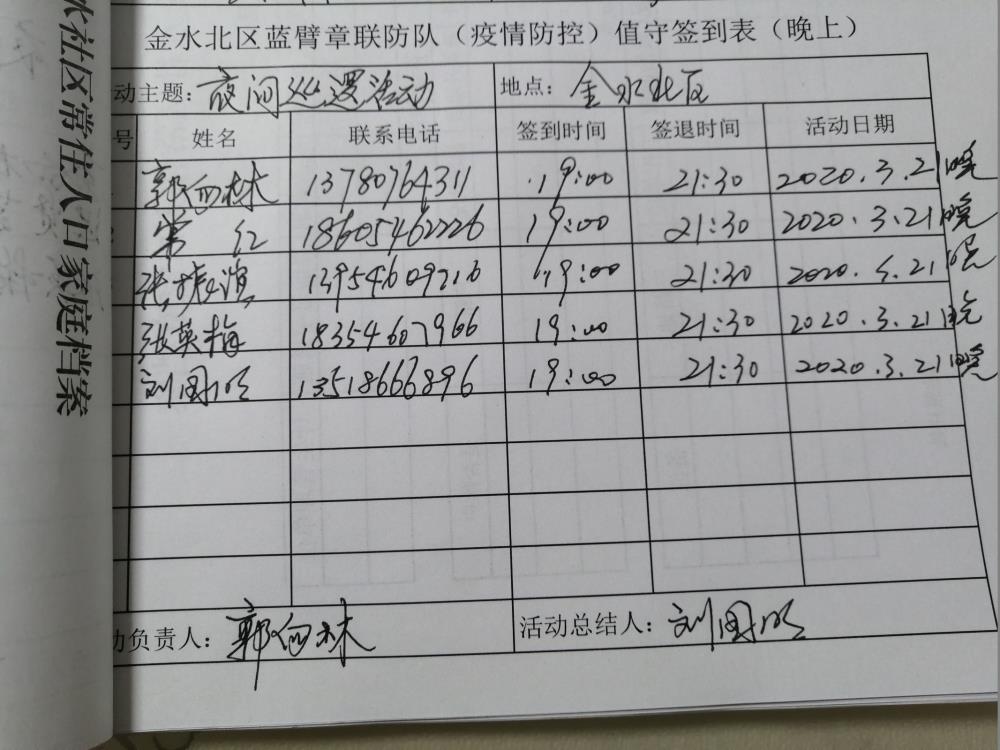 水社区常住人口家庭档案
金水北区蓝臂章联防队（疫情防控）值守签到表（晚上）
动主题：夜间巡逻活动 地点：金水北区
号 姓名 联系电话 签到时间 签退时间 活动日期
郭向林 13780764311 19:00 21:30 2020.3.21晚
常红 18605462226 19:00 21:30 2020.3.21晚
张 13954609216 19:00 21:30 2020.3.21晚
张英梅 18354607966 19:00 21:30 2020.3.21晚
刘国明 13518666896 19:00 21:30 2020.3.21晚
动负责人：郭向林 活动总结人：刘国明